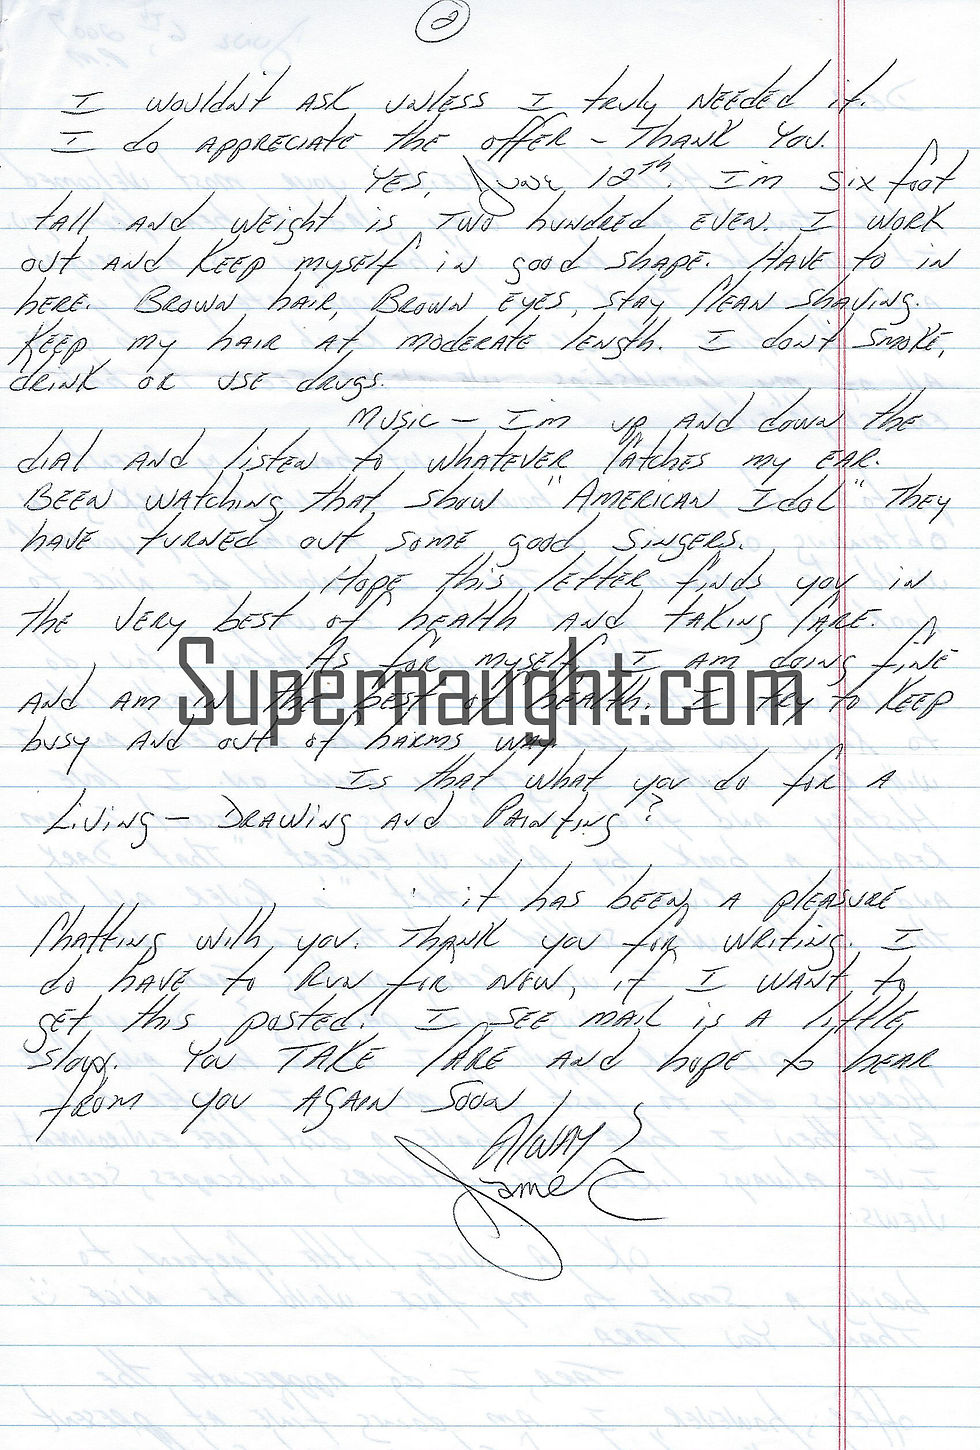 2
I wouldn't ask unless I truly needed it.
I do appreciate the offer - Thank you.
Yes, June 12th. I'm six foot
tall and weight is two hundred even. I work
out and keep myself in good shape. Have to in
here. Brown hair, Brown eyes, stay clean shaving.
Keep my hair at moderate length. I don't smoke,
drink or use drugs.
Music - I'm up and down the
dial and listen to whatever catches my ear.
Been watching that show "American Idol" They
have turned out some good singers.
Hope this letter finds you in
the very best of health and taking care.
As for myself I am doing fine
and am in the best of health. I try to keep
Supernaught.com
busy and out of harms way
Is that what you do for a
Living - Drawing and Painting?
it has been a pleasure
chatting with you. Thank you for writing. I
do have to run for now, if I want to
get this posted. I see mail is a little
slow. You take care and hope to hear
from you again soon!
Always
James